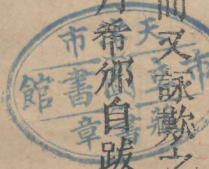 而又詠歎之
月希邠自跋
天市
書館
章